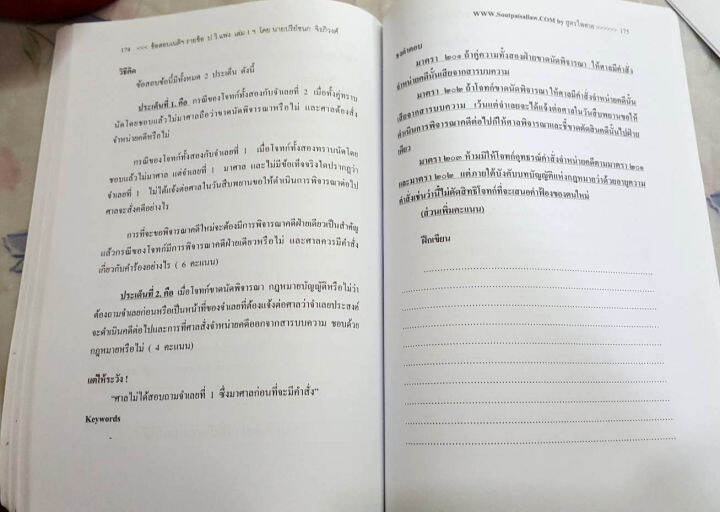 174 <<< ข้อสอบเนติฯ รายข้อ ป.วิ.แพ่ง เล่ม 1 ฯ โดย นายปรีย์ชนก จิรภิวงศ์
วิธีคิด
ข้อสอบข้อนี้มีทั้งหมด 2 ประเด็น ดังนี้
ประเด็นที่ 1. คือ กรณีของโจทก์ทั้งสองกับจำเลยที่ 2 เมื่อทั้งคู่ทราบ
นัดโดยชอบแล้วไม่มาศาลถือว่าขาดนัดพิจารณาหรือไม่ และศาลต้องสั่ง
จำหน่ายคดีหรือไม่
กรณีของโจทก์ทั้งสองกับจำเลยที่ 1 เมื่อโจทก์ทั้งสองทราบนัดโดย
ชอบแล้วไม่มาศาล แต่จำเลยที่ 1 มาศาล และไม่มีข้อเท็จจริงใดปรากฏว่า
จำเลยที่ 1 ไม่ได้แจ้งต่อศาลในวันสืบพยานขอให้ดำเนินการพิจารณาต่อไป
ศาลจะสั่งคดีอย่างไร
การที่จะขอพิจารณาคดีใหม่จะต้องมีการพิจารณาคดีฝ่ายเดียวเป็นสำคัญ
แล้วกรณีของโจทก์มีการพิจารณาคดีฝ่ายเดียวหรือไม่ และศาลควรมีคำสั่ง
เกี่ยวกับคำร้องอย่างไร ( 6 คะแนน)
ประเด็นที่ 2. คือ เมื่อโจทก์ขาดนัดพิจารณา กฎหมายบัญญัติหรือไม่ว่า
ต้องถามจำเลยก่อนหรือเป็นหน้าที่ของจำเลยที่ต้องแจ้งต่อศาลว่าจำเลยประสงค์
จะดำเนินคดีต่อไปและการที่ศาลสั่งจำหน่ายคดีออกจากสารบบความ ชอบด้วย
กฎหมายหรือไม่ ( 4 คะแนน)
แต่ให้ระวัง !
“ศาลไม่ได้สอบถามจำเลยที่ 1 ซึ่งมาศาลก่อนที่จะมีคำสั่ง”
Keywords
WWW.SoutpaisalLaw.COM by สูตรไพศาล >>>>>> 175
ธงคำตอบ
มาตรา ๒๐๑ ถ้าคู่ความทั้งสองฝ่ายขาดนัดพิจารณา ให้ศาลมีคำสั่ง
จำหน่ายคดีนั้นเสียจากสารบบความ
มาตรา ๒๐๒ ถ้าโจทก์ขาดนัดพิจารณา ให้ศาลมีคำสั่งจำหน่ายคดีนั้น
เสียจากสารบบความ เว้นแต่จำเลยจะได้แจ้งต่อศาลในวันสืบพยานขอให้
ดำเนินการพิจารณาคดีต่อไปก็ให้ศาลพิจารณาและชี้ขาดตัดสินคดีนั้นไปฝ่าย
เดียว
มาตรา ๒๐๓ ห้ามมิให้โจทก์อุทธรณ์คำสั่งจำหน่ายคดีตามมาตรา ๒๐๑
และมาตรา ๒๐๒ แต่ภายใต้บังคับบทบัญญัติแห่งกฎหมายว่าด้วยอายุความ
คำสั่งเช่นว่านี้ไม่ตัดสิทธิโจทก์ที่จะเสนอคำฟ้องของตนใหม่
(ส่วนเพิ่มคะแนน)
ฝึกเขียน